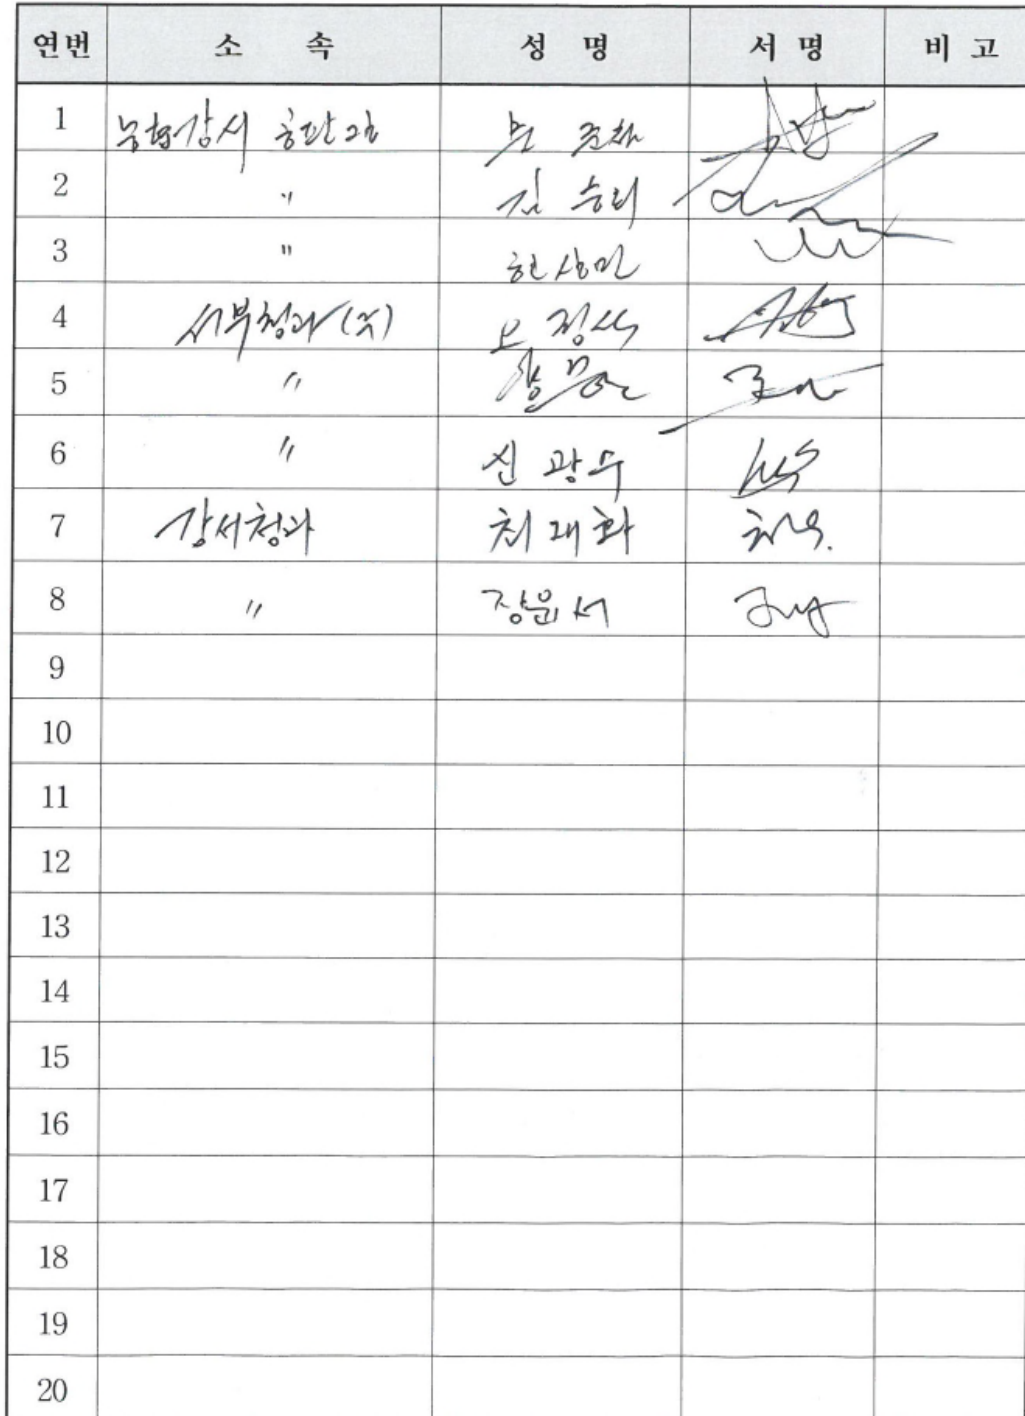 연번 소 속 성 명 서 명 비 고
1 농협강서공판장
2 〃 김승태
3 〃 현상민
4 서부청과(주) 오정석
5 〃
6 〃 신광수
7 강서청과 최대화
8 〃 장윤서
9
10
11
12
13
14
15
16
17
18
19
20